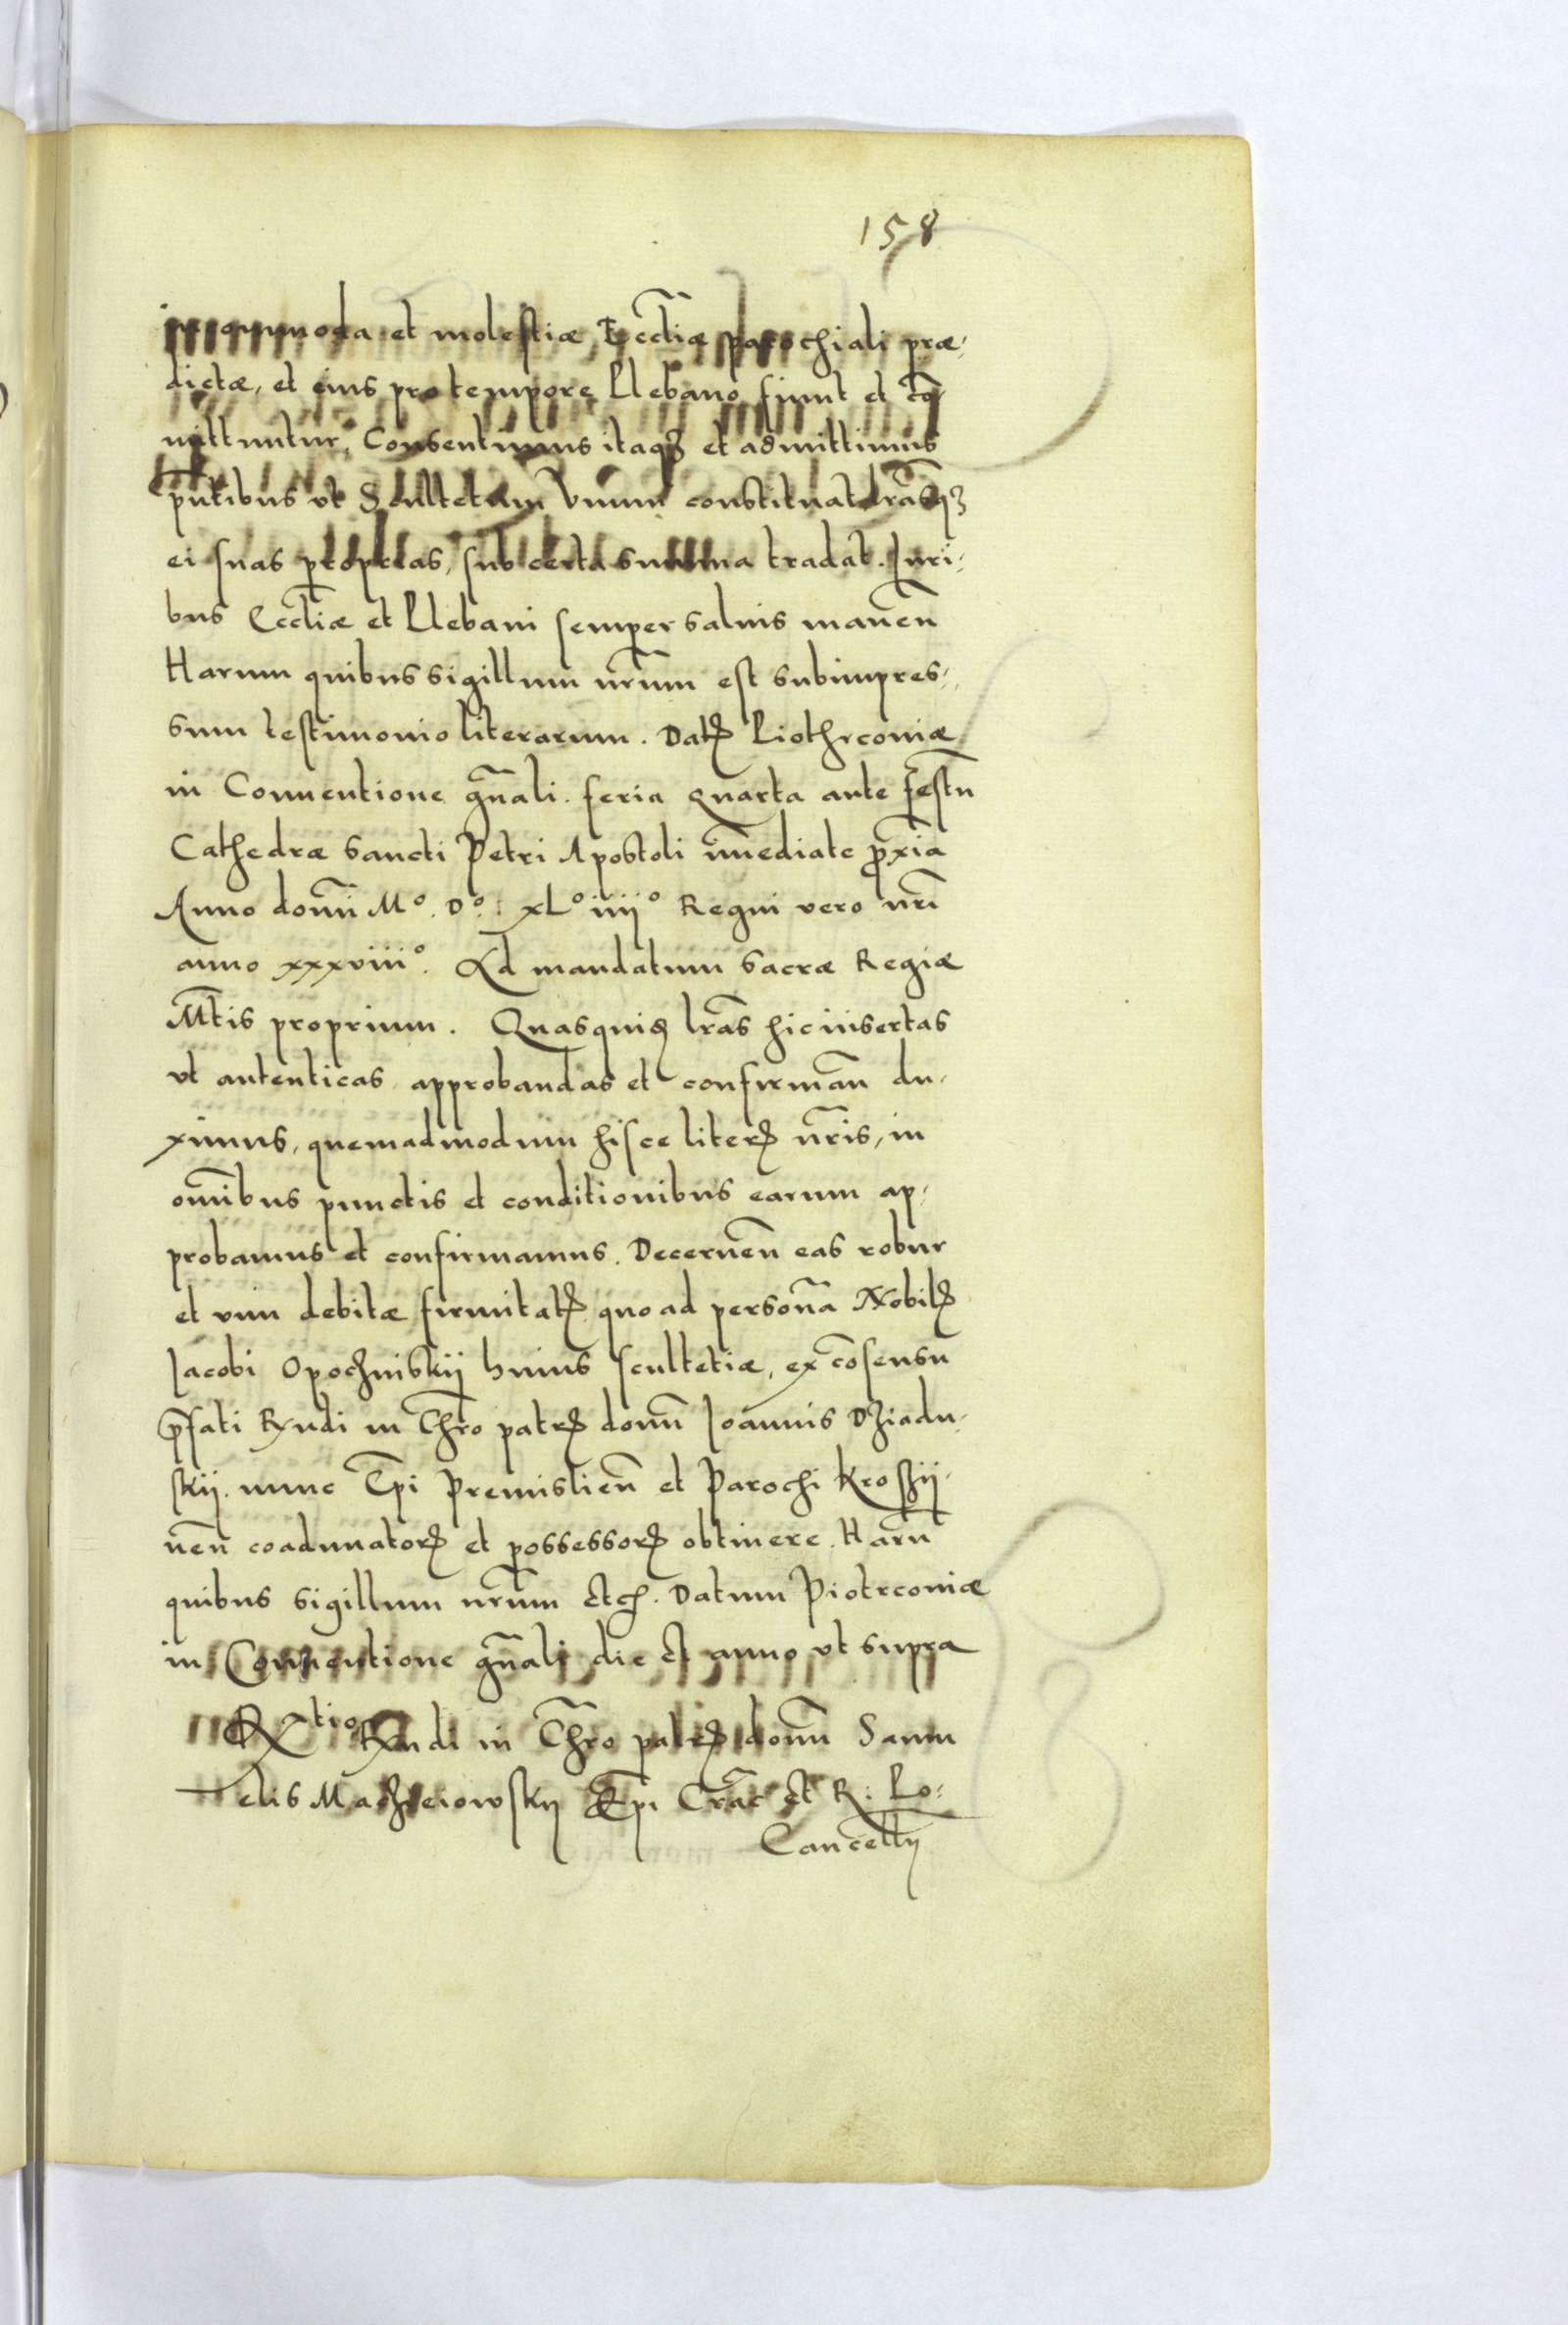 158
incommoda et molestiæ Eccliæ parochiali præ-
dictæ, et eius pro tempore Plebano fiunt et com̄
mittuntur, Consentimus itaqȝ et admittimus
p̄ntibus ut Scultetum vnum constituat lrāsqȝ
ei suas proprias, sub certa summa tradat. Iuri-
bus Eccliæ et Plebani semper salvis manen̄
Harum quibus sigillum nr̄um est subimpres-
sum testimonio literarum. Datꝭ Piothrconiæ
in Conventione gn̄ali. feria quarta ante festū
Cathedræ Sancti Petri Apostoli im̄ediate prox̄ia
Anno domī Mº. Dº. XLº iiijº Regni vero nr̄i
anno xxxviiiº. Ad mandatum Sacræ Regiæ
Mtis proprium. Quasquidꝫ lrās hic insertas
vt autenticas approbandas et confirmān du-
ximus, quemadmodum hisce literꝭ nr̄is, in
omībus punctis et conditionibus earum ap-
probamus et confirmamus. Decernen̄ eas robur
et vim debitæ firmitatꝭ quo ad personā Nobilꝭ
Iacobi Opochniskij huius scultetiæ, ex cōsensu
p̄fati Rx̄ndi in Chr̄o patrꝭ domī Ioannis Dziadu-
skij. nunc Epi Premislien̄ et Parochi Kroshij-
nen̄ coadunatorꝭ et possessorꝭ obtinere. Harū
quibus sigillum nr̄um etcꝭ. Datum Piotrconiæ
in Conventione gn̄ali die et anno vt supra
Rxtio Rx̄ndi in Chr̄o patrꝭ domī Samu
elis Machieiowskij Epi Crāc et R: Po:
Cancellij